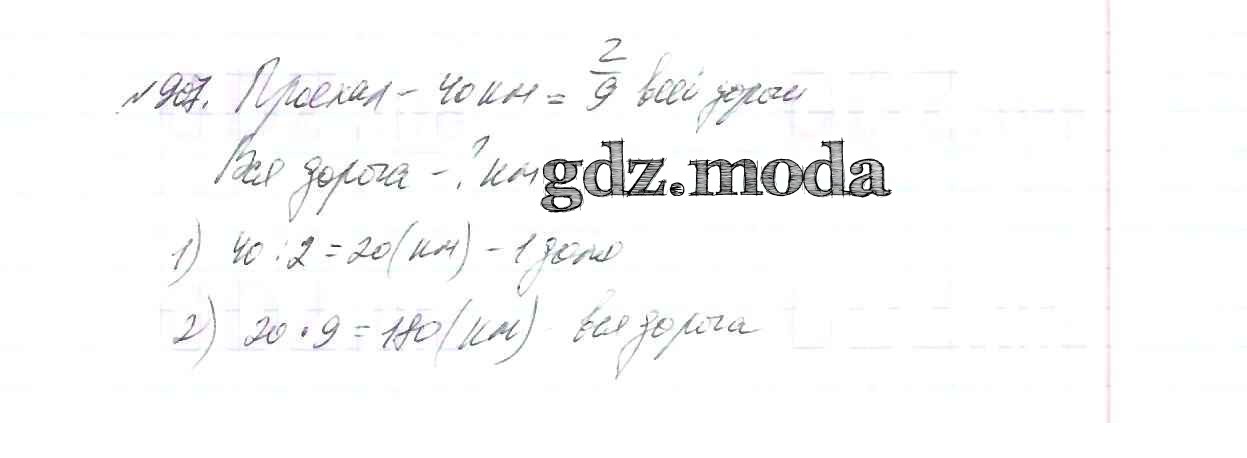 №907. Проехал - 40 км = 2/9 всей дороги
Вся дорога - ? км
gdz.moda
1) 40 : 2 = 20 (км) - 1 доля
2) 20 • 9 = 180 (км) - вся дорога